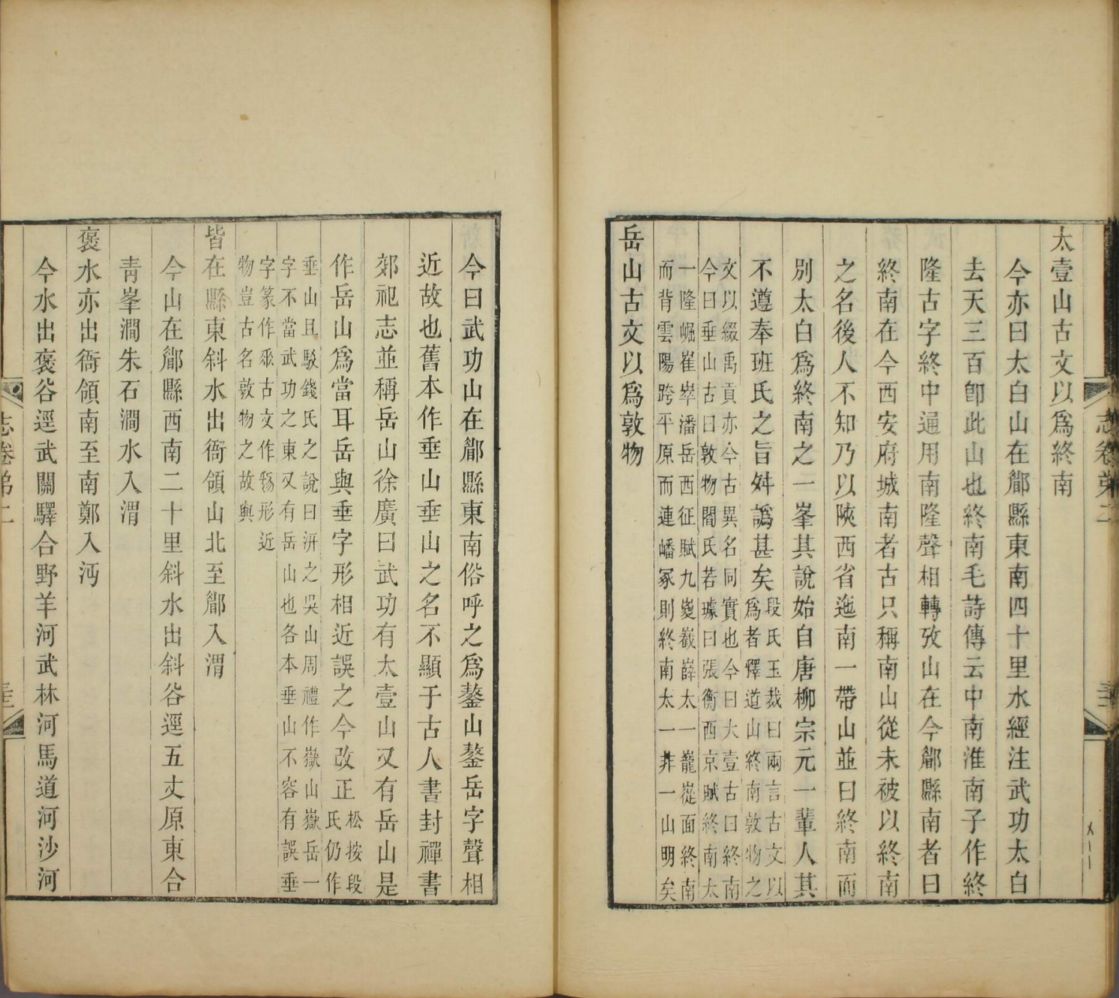 太壹山古文以爲終南
今亦曰太白山在郿縣東南四十里水經注武功太白
去天三百卽此山也終南毛詩傳云中南淮南子作終
隆古字終中通用南隆聲相轉攷山在今郿縣南者曰
終南在今西安府城南者古只稱南山從未被以終南
之名後人不知乃以陝西省迤南一帶山並曰終南而
別太白爲終南之一峯其說始自唐柳宗元一輩人其
不遵奉班氏之旨舛譌甚矣段氏玉裁曰兩言古文以
爲者釋道山終南敦物之
文以綴禹貢亦今古異名同實也今曰大壹古曰終南
今曰垂山古曰敦物閻氏若璩曰張衡西京賦終南太
一隆崛崔崒潘岳西征賦九嵕嶻嶭太一巃嵸面終南
而背雲陽跨平原而連嶓冢則終南太一非一山明矣
岳山古文以爲敦物
今曰武功山在郿縣東南俗呼之爲鏊山鏊岳字聲相
近故也舊本作垂山垂山之名不顯于古人書封禪書
郊祀志並稱岳山徐廣曰武功有太壹山又有岳山是
作岳山爲當耳岳與垂字形相近誤之今改正松按段
氏仍作
垂山且駁錢氏之說曰汧之吳山周禮作嶽山嶽岳一
字不當武功之東又有岳山也各本垂山不容有誤垂
字篆作𠂹古文作𠣔形近
物豈古名敦物之故與
皆在縣東斜水出衙領山北至郿入渭
今山在郿縣西南二十里斜水出斜谷逕五丈原東合
靑峯澗朱石澗水入渭
褒水亦出衙領南至南鄭入沔
今水出褒谷逕武關驛合野羊河武林河馬道河沙河
志卷第二
志卷第二